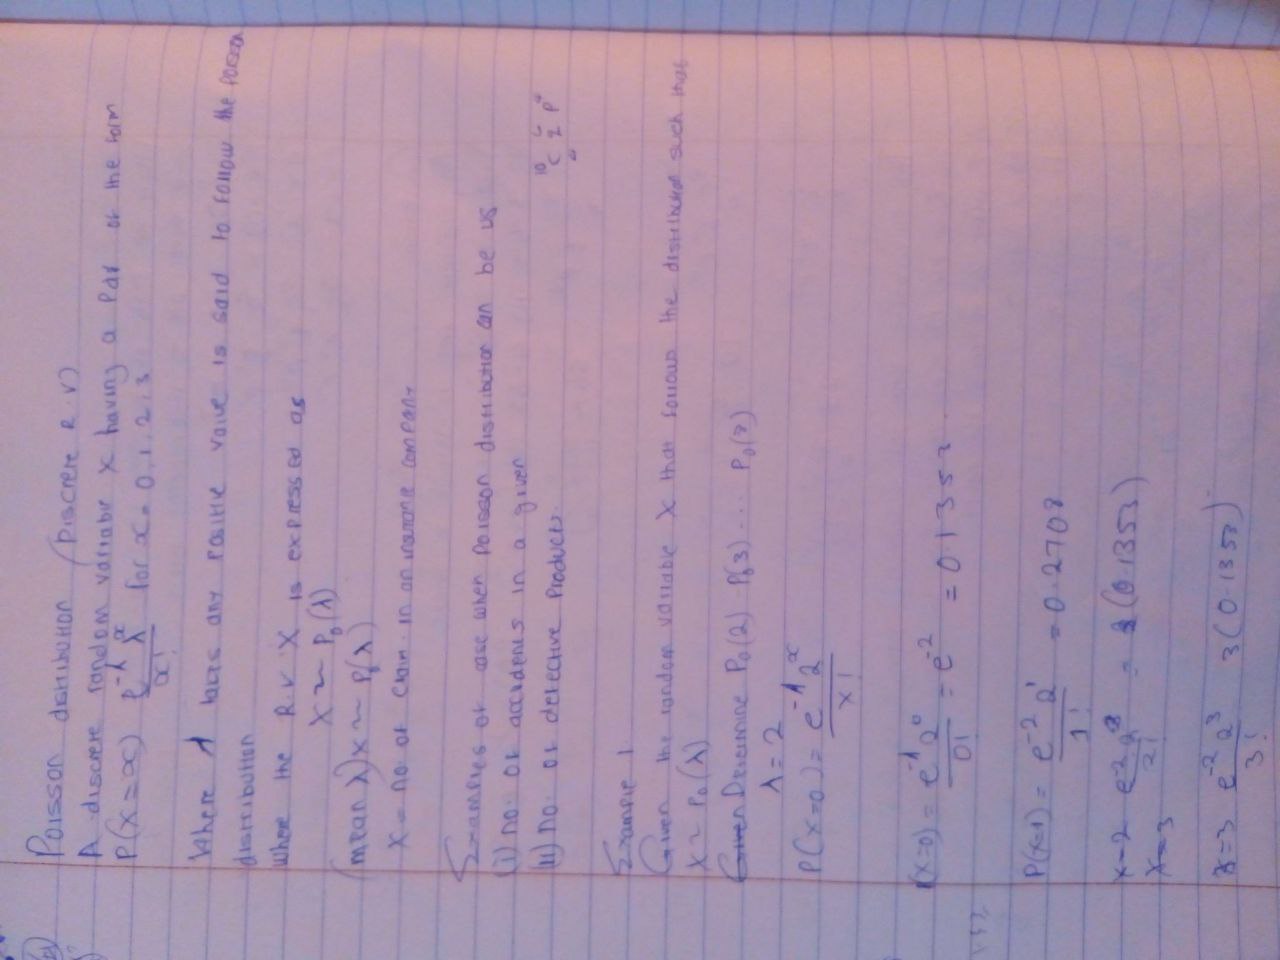 Poisson distribution (Discrete R.V)
A discrete random variable X having a Pdf of the form
P(X=x) e^-λ λ^x / x! for x = 0, 1, 2, 3
Where λ takes any positive value is said to follow the poisson
distribution
Where the R.V X is expressed as
X ~ Po(λ)
(mean λ) X ~ Po(λ)
X = no. of claim in an insurance company
Examples of case when poisson distribution can be us
(i) no. of accidents in a given
(ii) no. of defective products
10 C
Example 1
Given the random variable X that follows the distribution such that
X ~ Po(λ)
Given Determine Po(2) Po(3) ... Po(8)
λ = 2
P(X=0) = e^-λ 2^x / x!
(X=0) = e^-λ 2^0 / 0! = e^-2 = 0.1353
P(X=1) = e^-2 2^1 / 1! = 0.2708
x=2 e^-2 2^2 / 2! = 2(0.1353)
x=3
x=3 e^-2 2^3 / 3! 3(0.1353)